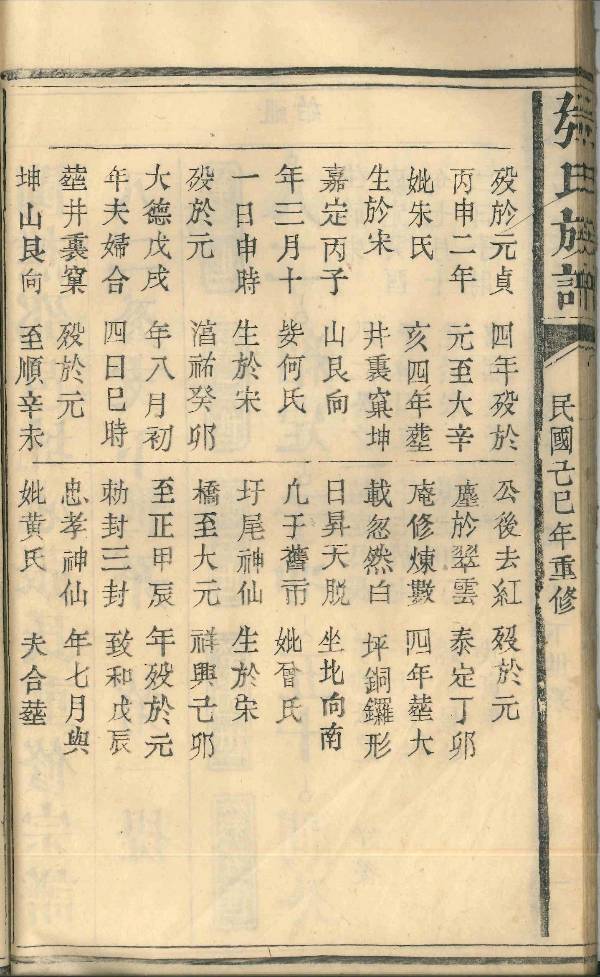 張氏族譜
民國己巳年重修
歿於元貞
丙申二年
妣朱氏
生於宋
嘉定丙子
年三月十
一日申時
歿於元
大德戊戌
年夫婦合
塟井裏窠
坤山艮向
四年歿於
元至大辛
亥四年塟
井裏窠坤
山艮向
妣何氏
生於宋
淳祐癸卯
年八月初
四日巳時
歿於元
至順辛未
公後去紅
塵於翠雲
庵修煉數
載忽然白
日昇天脫
凢于舊市
圩尾神仙
橋至大元
至正甲辰
勅封三封
忠孝神仙
妣黃氏
歿於元
泰定丁卯
四年塟大
坪銅鑼形
坐北向南
妣曾氏
生於宋
祥興己卯
年歿於元
致和戊辰
年七月與
夫合塟